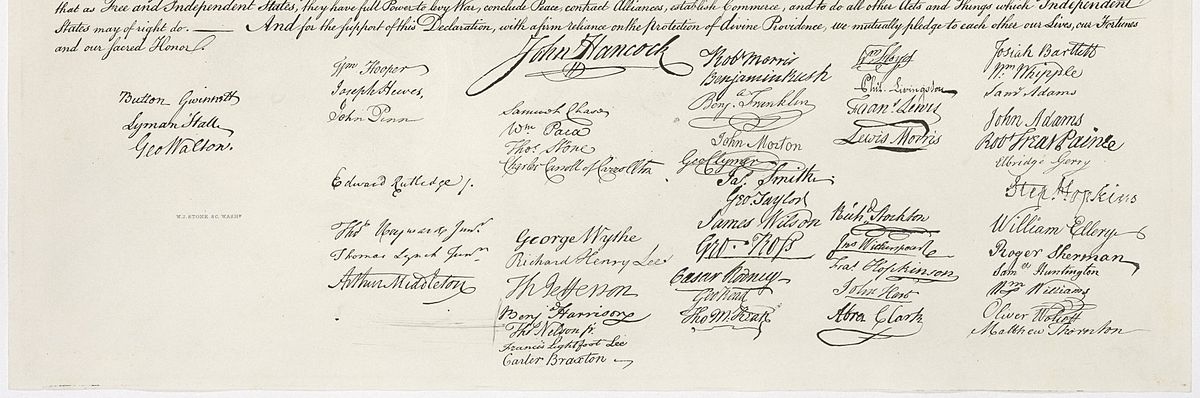 that as Free and Independent States, they have full Power to levy War, conclude Peace, contract Alliances, establish Commerce, and to do all other Acts and Things which Independent
States may of right do. — And for the support of this Declaration, with a firm reliance on the protection of divine Providence, we mutually pledge to each other our Lives, our Fortunes
and our sacred Honor.
Button Gwinnett
Lyman Hall
Geo Walton.
W.J. STONE SC. WASHN
Wm Hooper
Joseph Hewes,
John Penn
Edward Rutledge /.
Thos Heyward Junr.
Thomas Lynch Junr.
Arthur Middleton
John Hancock
Samuel Chase
Wm Paca
Thos Stone
Charles Carroll of Carrollton
George Wythe
Richard Henry Lee
Th Jefferson
Benj Harrison
Thos Nelson jr.
Francis Lightfoot Lee
Carter Braxton
Robt Morris
Benjamin Rush
Benj. Franklin
John Morton
Geo Clymer
Jas. Smith
Geo. Taylor
James Wilson
Geo. Ross
Caesar Rodney
Geo Read
Tho M:Kean
Wm Floyd
Phil. Livingston
Frans. Lewis
Lewis Morris
Richd. Stockton
Jno Witherspoon
Fras. Hopkinson
John Hart
Abra Clark
Josiah Bartlett
Wm Whipple
Saml Adams
John Adams
Robt Treat Paine
Elbridge Gerry
Step. Hopkins
William Ellery
Roger Sherman
Saml Huntington
Wm Williams
Oliver Wolcott
Matthew Thornton